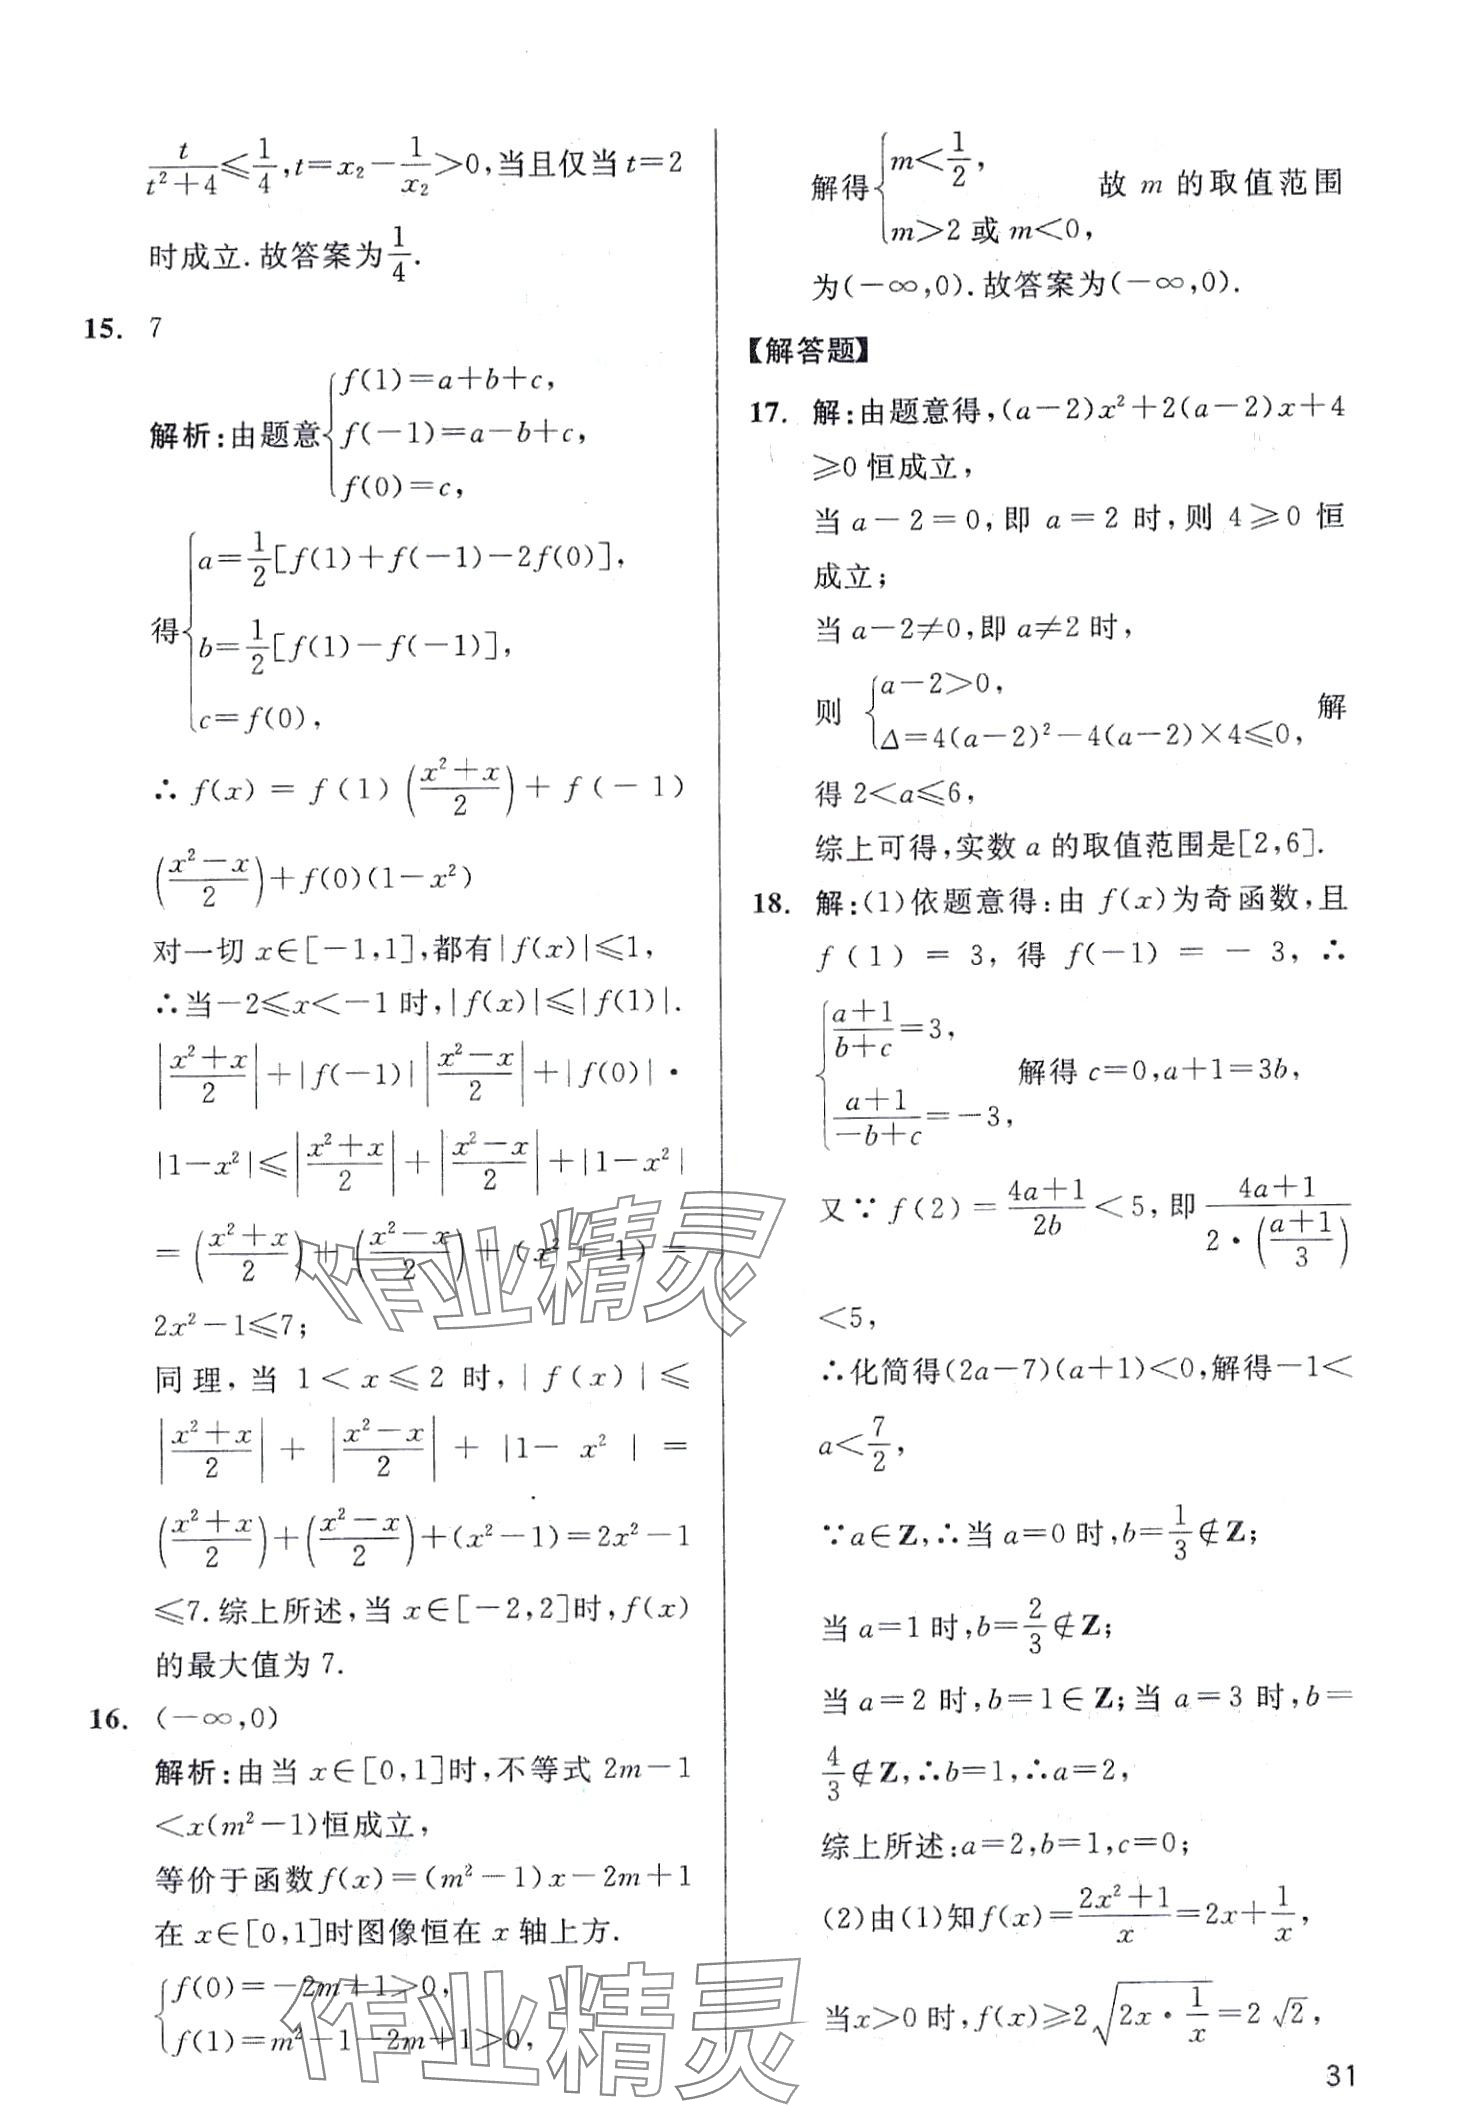 t/(t²+4)≤1/4,t=x₂-1/x₂>0,当且仅当t=2
时成立.故答案为1/4.
15. 7
解析:由题意{f(1)=a+b+c,
f(-1)=a-b+c,
f(0)=c,
得{a=1/2[f(1)+f(-1)-2f(0)],
b=1/2[f(1)-f(-1)],
c=f(0),
∴f(x)=f(1)((x²+x)/2)+f(-1)
((x²-x)/2)+f(0)(1-x²)
对一切x∈[-1,1],都有|f(x)|≤1,
∴当-2≤x<-1时,|f(x)|≤|f(1)|.
|(x²+x)/2|+|f(-1)||(x²-x)/2|+|f(0)|·
|1-x²|≤|(x²+x)/2|+|(x²-x)/2|+|1-x²|
=((x²+x)/2)+((x²-x)/2)+(x²-1)=
2x²-1≤7;
同理,当1<x≤2时,|f(x)|≤
|(x²+x)/2|+|(x²-x)/2|+|1-x²|=
((x²+x)/2)+((x²-x)/2)+(x²-1)=2x²-1
≤7.综上所述,当x∈[-2,2]时,f(x)
的最大值为7.
16. (-∞,0)
解析:由当x∈[0,1]时,不等式2m-1
<x(m²-1)恒成立,
等价于函数f(x)=(m²-1)x-2m+1
在x∈[0,1]时图像恒在x轴上方.
{f(0)=-2m+1>0,
f(1)=m²-1-2m+1>0,
解得{m<1/2,
m>2或m<0,
故m的取值范围
为(-∞,0).故答案为(-∞,0).
【解答题】
17. 解:由题意得,(a-2)x²+2(a-2)x+4
≥0恒成立,
当a-2=0,即a=2时,则4≥0恒
成立;
当a-2≠0,即a≠2时,
则{a-2>0,
Δ=4(a-2)²-4(a-2)×4≤0,
解
得2<a≤6,
综上可得,实数a的取值范围是[2,6].
18. 解:(1)依题意得:由f(x)为奇函数,且
f(1)=3,得f(-1)=-3,∴
{(a+1)/(b+c)=3,
(a+1)/(-b+c)=-3,
解得c=0,a+1=3b,
又∵f(2)=(4a+1)/2b<5,即(4a+1)/(2·((a+1)/3))
<5,
∴化简得(2a-7)(a+1)<0,解得-1<
a<7/2,
∵a∈Z,∴当a=0时,b=1/3∉Z;
当a=1时,b=2/3∉Z;
当a=2时,b=1∈Z;当a=3时,b=
4/3∉Z,∴b=1,∴a=2,
综上所述:a=2,b=1,c=0;
(2)由(1)知f(x)=(2x²+1)/x=2x+1/x,
当x>0时,f(x)≥2√(2x·1/x)=2√2,
31
作业精灵
作业精灵